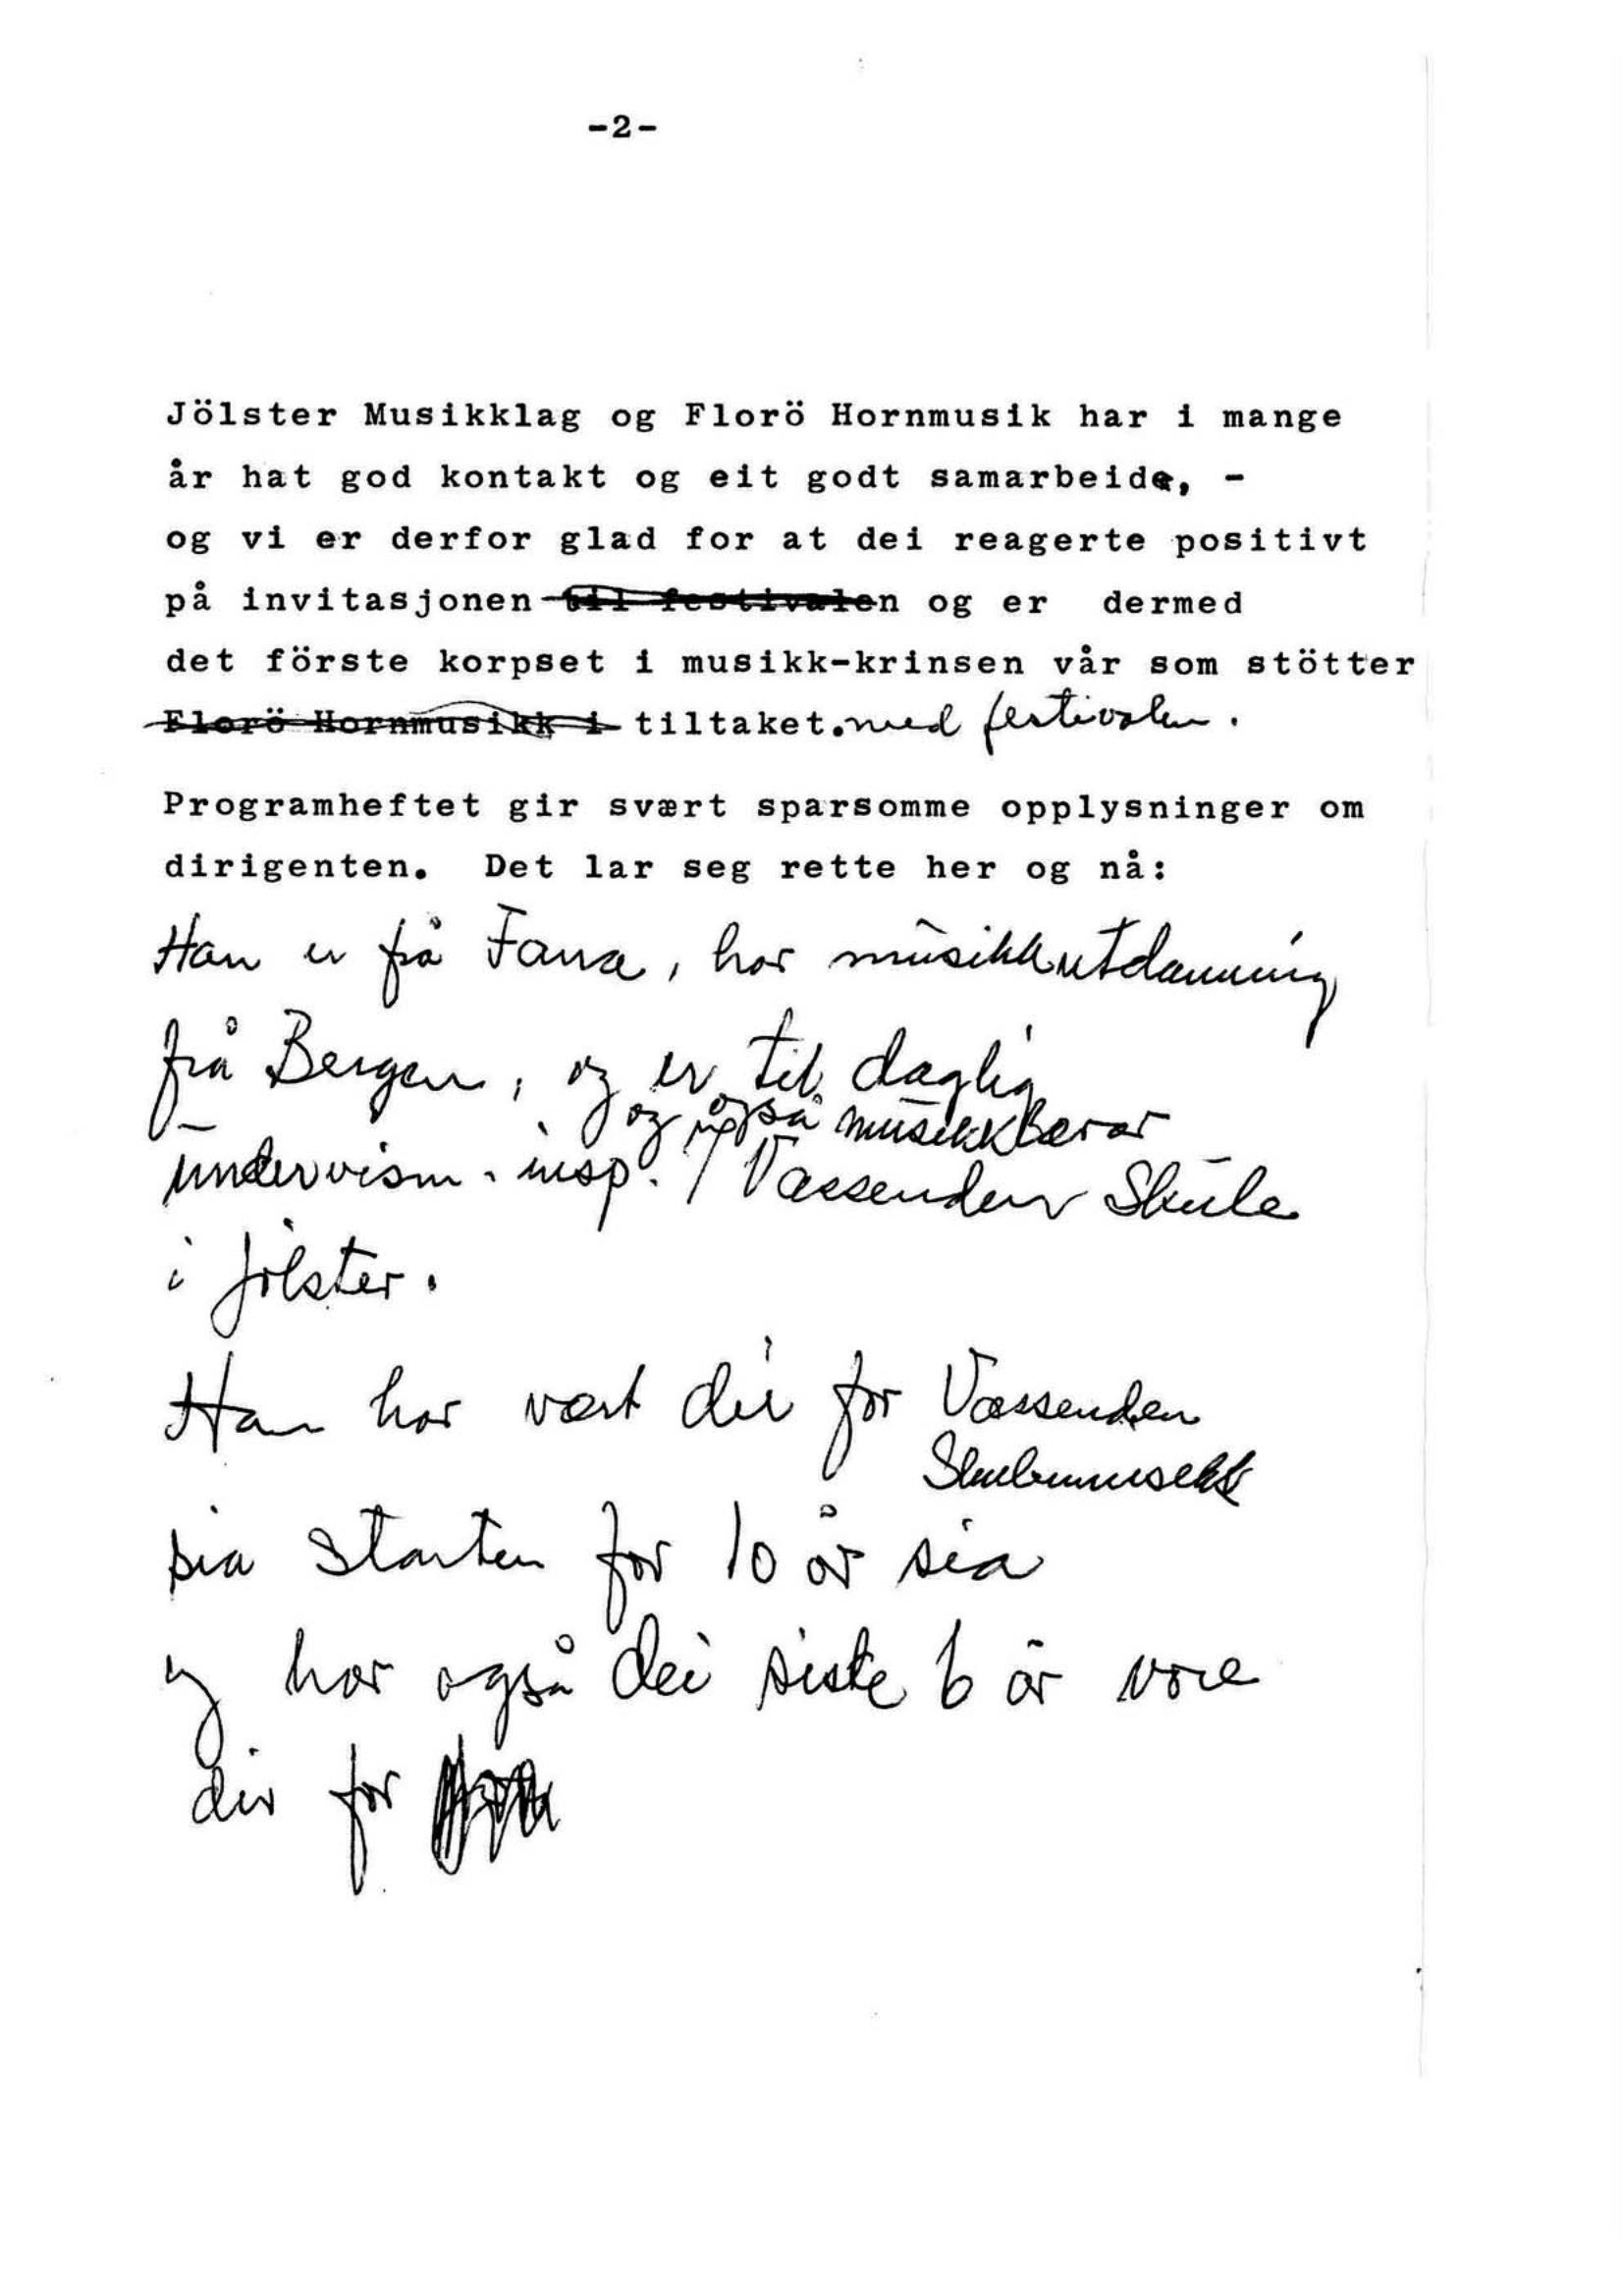 -2-
Jölster Musikklag og Florö Hornmusik har i mange
år hat god kontakt og eit godt samarbeide, -
og vi er derfor glad for at dei reagerte positivt
på invitasjonen til festivalen og er dermed
det förste korpset i musikk-krinsen vår som stötter
Florö Hornmusikk i tiltaket. med festivalen.
Programheftet gir svært sparsomme opplysninger om
dirigenten. Det lar seg rette her og nå:
Han er frå Fana, har musikkutdanning
frå Bergen, og er til daglig
og også musikklærar
undervisn. insp. / Vassenden Skule
i Jölster.
Han har vært dir for Vassenden
Skulemusikk
sia starten for 10 år sia
og har også dei siste 6 år vore
dir for